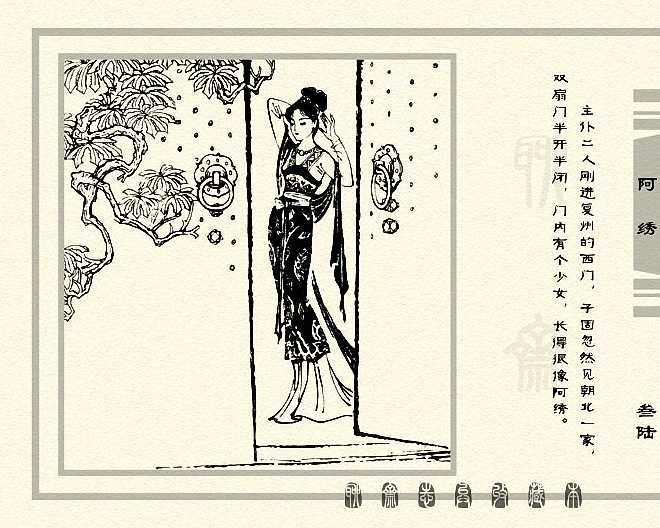 主仆二人刚进复州的西门，子固忽然见朝北一家，
双扇门半开半闭，门内有个少女，长得很像阿绣。
阿绣
叁陆
聊斋志异珍藏本